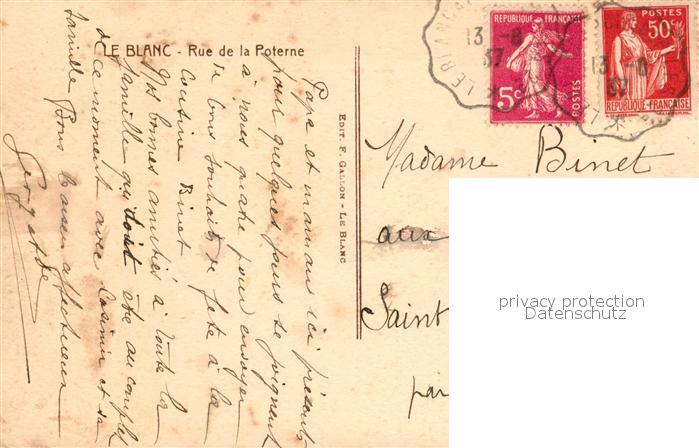 LE BLANC - Rue de la Poterne
Papa et maman ici présents
pour quelques jours se joignent
à nous quatre pour envoyer
de bons souhaits de fête à la
cousine Binet
Nos bonnes amitiés à toute la
famille qui doit être au complet
de ce moment avec Casimir et sa
famille Bons baisers affectueux
Georgette
EDIT. F. GALLON - LE BLANC
RÉPUBLIQUE FRANÇAISE
5c
POSTES
POSTES
50c
RÉPUBLIQUE FRANÇAISE
13 - 8
37
LE BLANC
13 - 8
37
Madame Binet
aux
Saint
par
privacy protection
Datenschutz